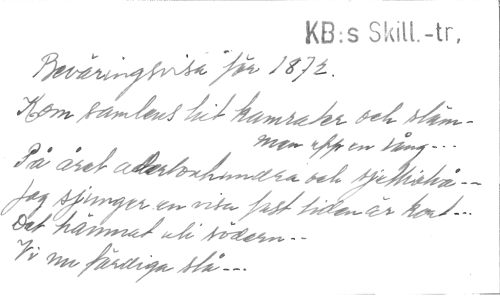 KB:s Skill.-tr.
Beväringsvisa för 1872.
Kom samlens hit kamrater och stäm-
men upp en sång---
På året adertonhundra och sjuttiotvå---
Jag sjunger en visa fast tiden är kort---
Det hämnat uti södern--
Vi nu färdiga stå---